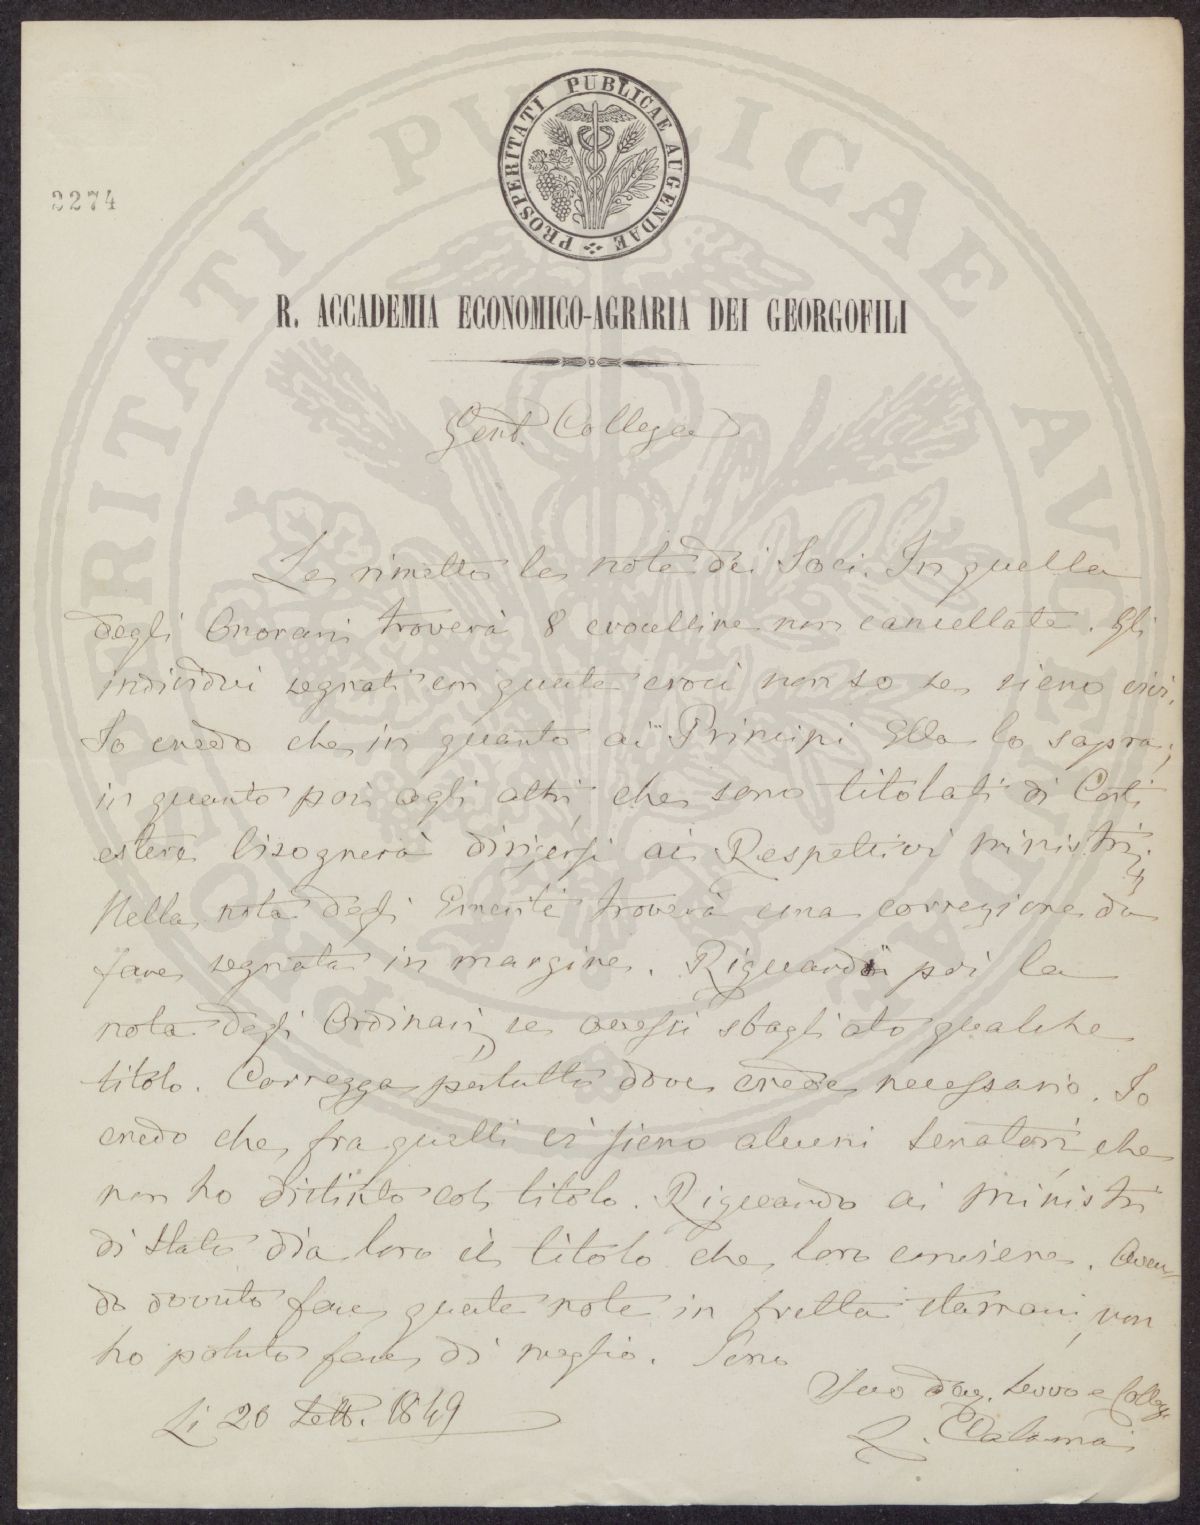 PROSPERITATI PUBLICAE AUGENDAE
2274
R. ACCADEMIA ECONOMICO-AGRARIA DEI GEORGOFILI
Gent. Collega
Le rimetto le note dei Soci. In quella
degli Onorari troverà 8 crocelline non cancellate. Gli
individui segnati con queste croci non so se sieno vivi.
Io credo che in quanto ai Principi Ella lo saprà;
in quanto poi agli altri, che sono titolati di Corti
estere bisognerà dirigersi ai Respettivi ministri.
Nella nota degli Emeriti troverà una correzione da
fare segnata in margine. Riguardo poi la
nota degli Ordinari, se avessi sbagliato qualche
titolo. Corregga pertutto dove crede necessario. Io
credo che fra quelli ci sieno alcuni Senatori, che
non ho distinto col titolo. Riguardo ai ministri
di Stato dia loro il titolo che loro conviene. Aven-
do dovuto fare queste note in fretta stamani, non
ho potuto fare di meglio. Sono
Suo dev. servo e Collega
L. Calamai
Li 20 Sett. 1849